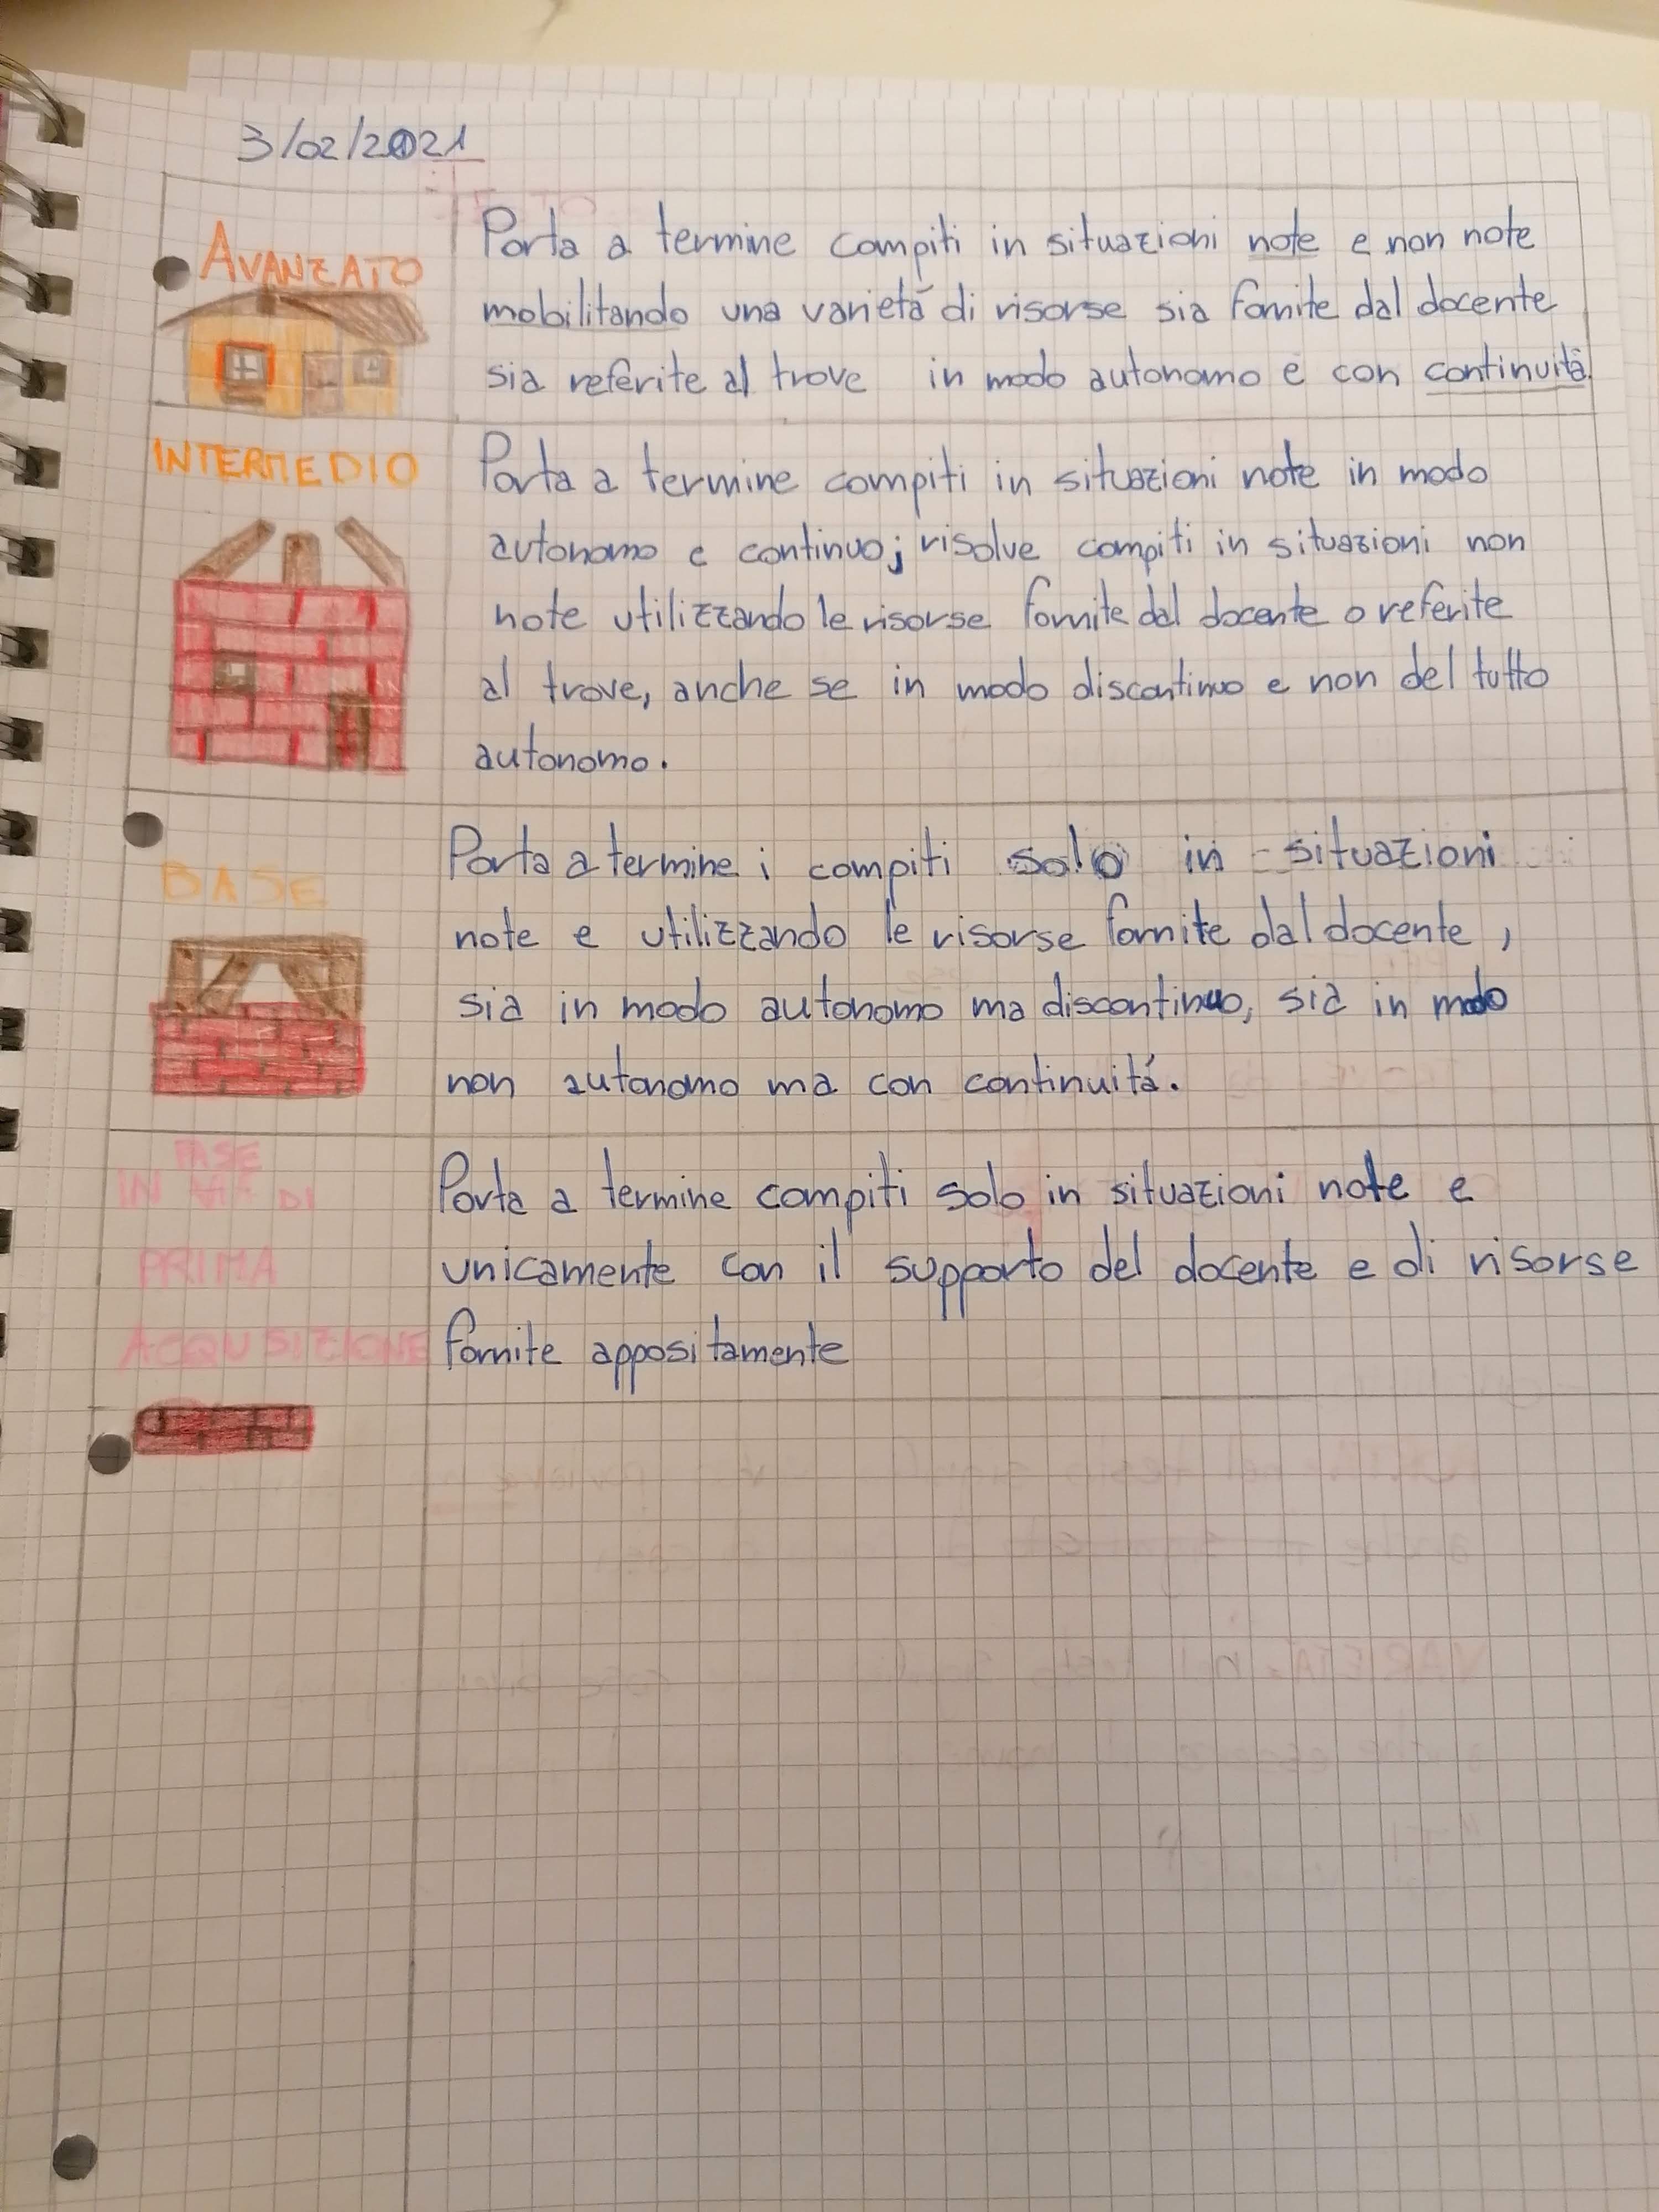 3/02/2021
AVANZATO
Porta a termine compiti in situazioni note e non note
mobilitando una varietà di risorse sia fornite dal docente
sia referite al trove in modo autonomo e con continuità.
INTERMEDIO
Porta a termine compiti in situazioni note in modo
autonomo e continuo; risolve compiti in situazioni non
note utilizzando le risorse fornite dal docente o referite
al trove, anche se in modo discontinuo e non del tutto
autonomo.
BASE
Porta a termine i compiti solo in situazioni
note e utilizzando le risorse fornite dal docente,
sia in modo autonomo ma discontinuo, sia in modo
non autonomo ma con continuitá.
IN FASE DI
PRIMA
ACQUSIZIONE
Porta a termine compiti solo in situazioni note e
unicamente con il supporto del docente e di risorse
fornite appositamente